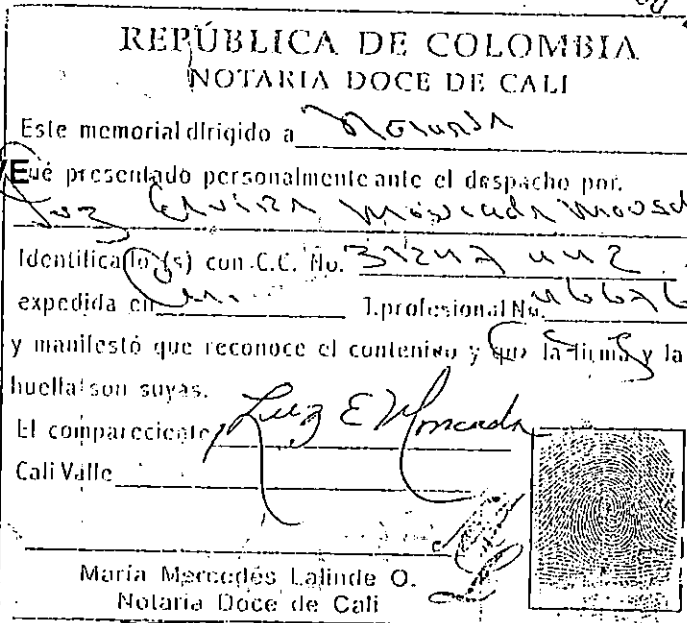 REPÚBLICA DE COLOMBIA
NOTARIA DOCE DE CALI
Este memorial dirigido a Notaria
Fué presentado personalmente ante el despacho por.
Luz Elvira Moncada
Identificado (s) con C.C. No. 31247442
expedida en Cali T.profesional No.
y manifestó que reconoce el contenido y que la firma y la
huella son suyas.
El compareciente Luz E Moncada
Cali Valle
María Mercedes Lalinde O.
Notaria Doce de Cali